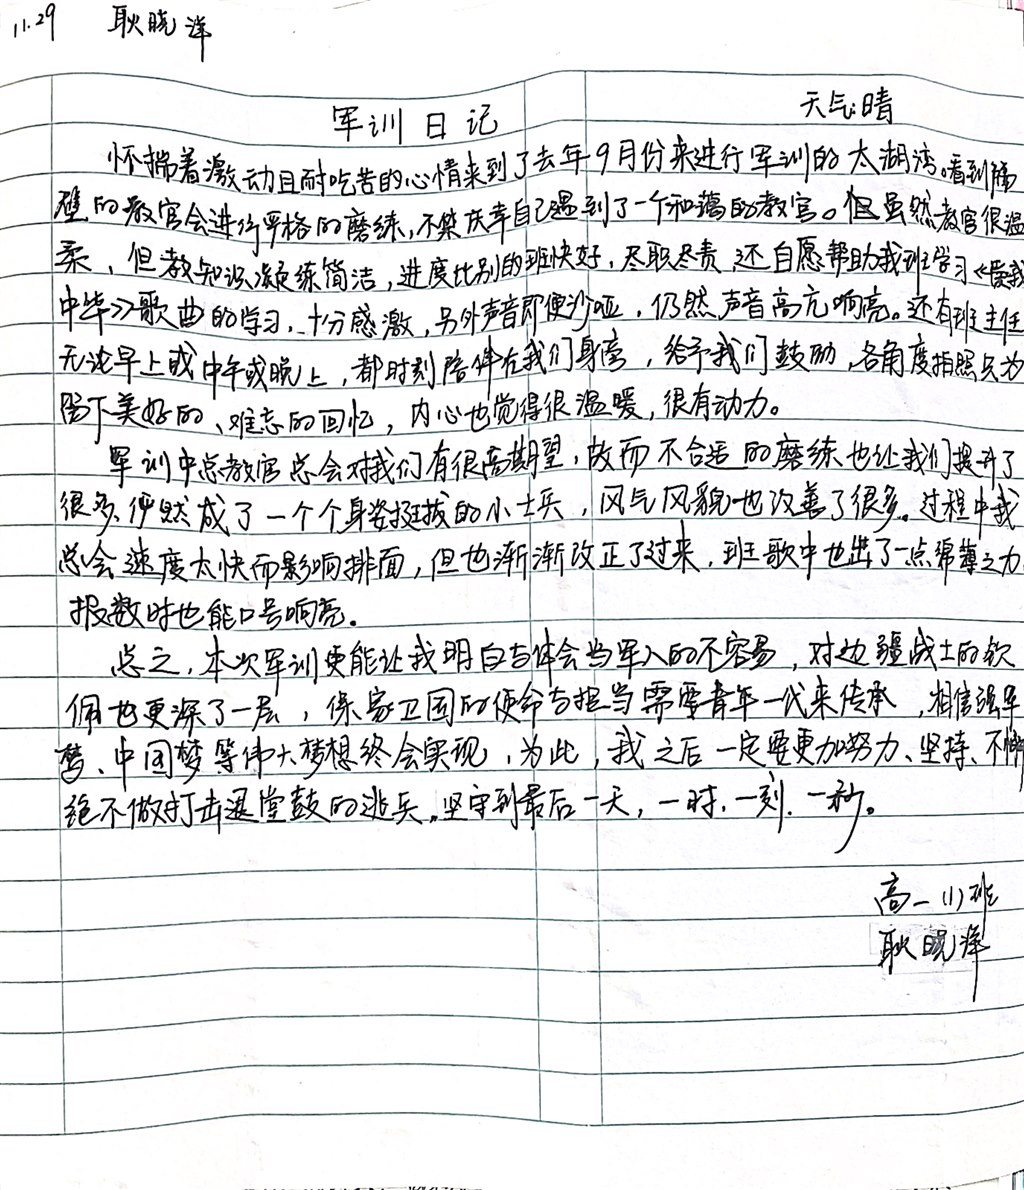 11.29 耿晓泽
军训日记 天气:晴
怀揣着激动且耐吃苦的心情来到了去年9月份来进行军训的太湖湾。看到隔
壁的教官会进行严格的磨练,不禁庆幸自己遇到了一个和蔼的教官。但虽然教官很温
柔,但教知识凝练简洁,进度比别的班快好,尽职尽责,还自愿帮助我班学习《爱我
中华》歌曲的学习,十分感激,另外声音即便沙哑,仍然声音高亢响亮。还有班主任
无论早上或中午或晚上,都时刻陪伴在我们身旁,给予我们鼓励,各角度拍照只为
留下美好的、难忘的回忆,内心也觉得很温暖,很有动力。
军训中总教官总会对我们有很高期望,故而不合适的磨练也让我们提升了
很多,俨然成了一个个身姿挺拔的小士兵,风气风貌也改善了很多。过程中我
总会速度太快而影响排面,但也渐渐改正了过来,班歌中也出了一点绵薄之力,
报数时也能口号响亮。
总之,本次军训更能让我明白与体会当军人的不容易,对边疆战士的钦
佩也更深了一层,保家卫国的使命与担当需要青年一代来传承,相信强军
梦、中国梦等伟大梦想终会实现,为此,我之后一定要更加努力、坚持、不懈
绝不做打击退堂鼓的逃兵,坚守到最后一天,一时,一刻,一秒。
高一(1)班
耿晓泽